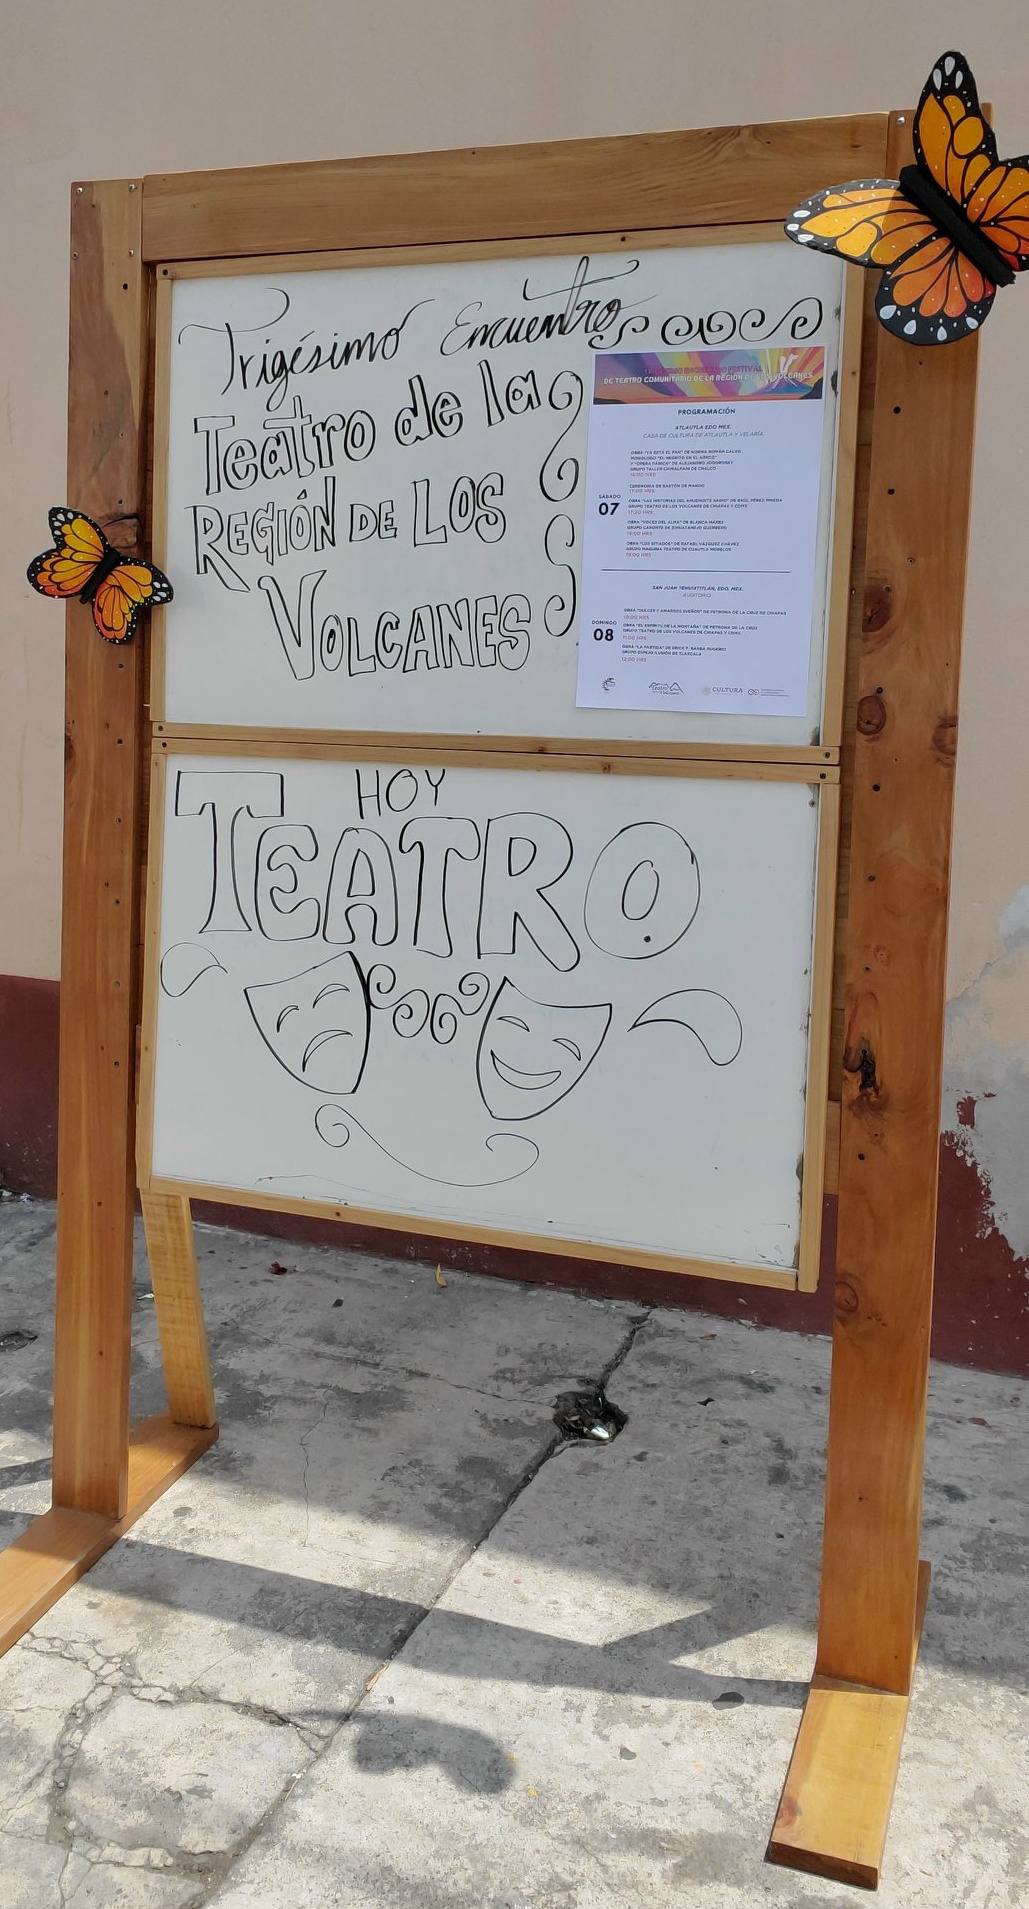 Trigésimo Encuentro
Teatro de la
REGIÓN DE LOS
VOLCANES
FESTIVAL
DE TEATRO COMUNITARIO DE LA REGIÓN DE LOS VOLCANES
PROGRAMACIÓN
ATLAUTLA EDO MEX.
CASA DE CULTURA DE ATLAUTLA Y VELARÍA
SÁBADO
07
OBRA "YA ESTÁ EL PAN" DE NORMA ROMÁN CALVO
MONÓLOGO "EL NEGRITO EN EL ARROZ"
Y "ÓPERA PÁNICA" DE ALEJANDRO JODOROWSKY
GRUPO TALLER CHIMALPAIN DE CHALCO
CEREMONIA DE BASTÓN DE MANDO
17:00 HRS
OBRA "LAS HISTORIAS DEL AHUEHUETE SABIO" DE RAÚL PÉREZ PINEDA
GRUPO TEATRO DE LOS VOLCANES DE CHIAPAS Y CDMX
17:20 HRS
OBRA "VOCES DEL ALMA" DE BLANCA
OBRA "LOS SITIADOS" DE RAFAEL VÁZQUEZ CHÁVEZ
TEATRO DE CUAUTLA MORELOS
SAN JUAN TEHUIXTITLÁN, EDO. MEX.
AUDITORIO
DOMINGO
08
OBRA "DULCES Y AMARGOS SUEÑOS" DE PETRONA DE LA CRUZ DE CHIAPAS
10:00 HRS
OBRA "EL ESPÍRITU DE LA MONTAÑA" DE PETRONA DE LA CRUZ
GRUPO TEATRO DE LOS VOLCANES DE CHIAPAS Y CDMX
11:00 HRS
OBRA "LA PARTIDA" DE ERICK P. BARBA RUGERIO
GRUPO ESPEJO ILUSIÓN DE TLAXCALA
12:00 HRS
Teatro
CULTURA
HOY
TEATRO